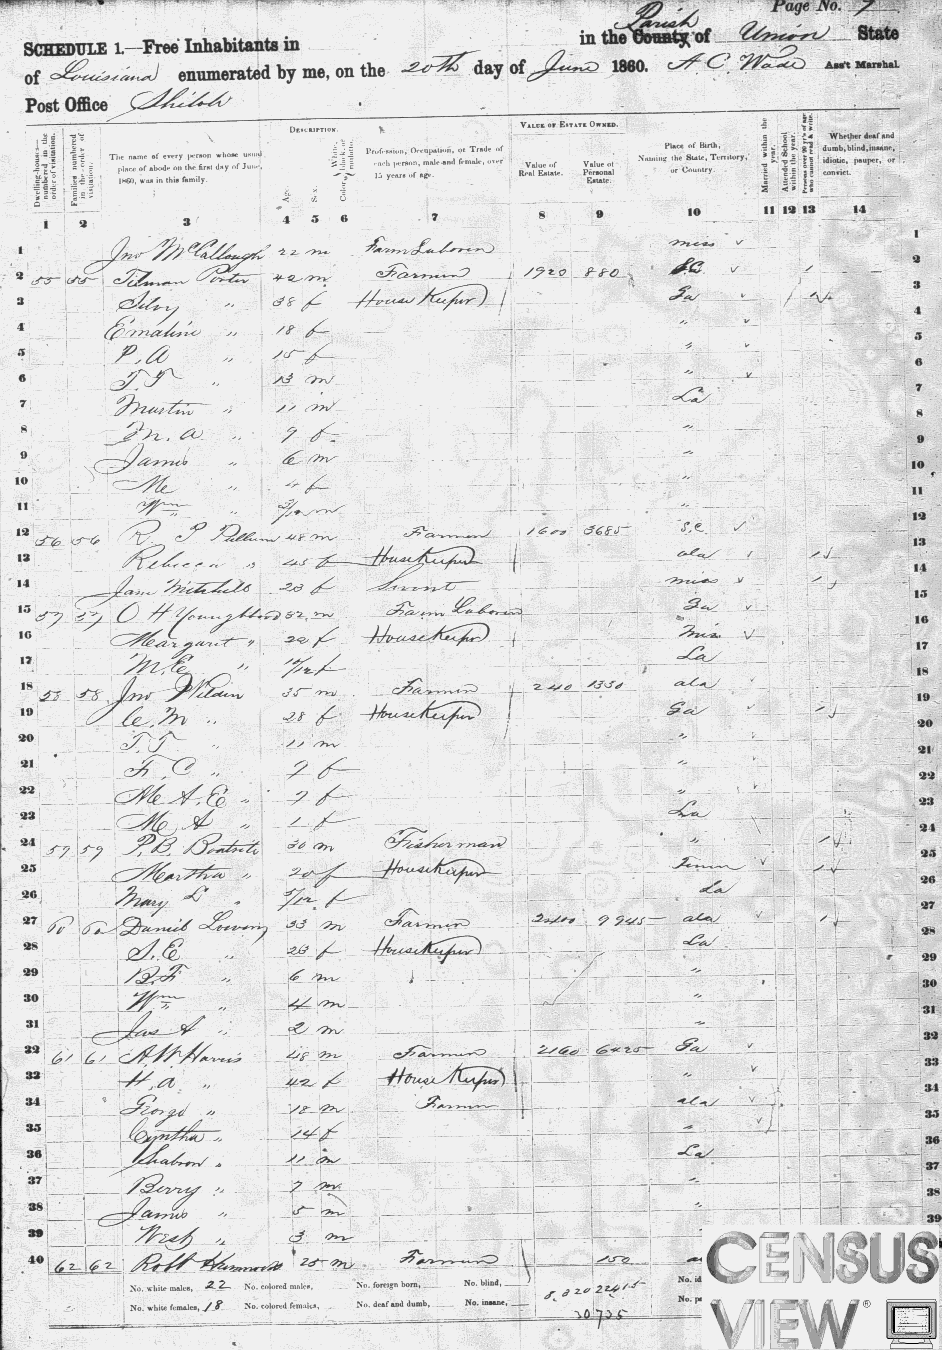 Page No. 7
SCHEDULE 1.—Free Inhabitants in in the County Parish of Union State
of Louisiana enumerated by me, on the 20th day of June 1860. A C. Wade Ass't Marshal.
Post Office Shiloh
DESCRIPTION. VALUE OF ESTATE OWNED.
Dwelling-houses—numbered in the order of visitation. Families numbered in the order of visitation. The name of every person whose usual place of abode on the first day of June, 1860, was in this family. Age. Sex. Color, White, black, or mulatto. Profession, Occupation, or Trade of each person, male and female, over 15 years of age. Value of Real Estate. Value of Personal Estate. Place of Birth, Naming the State, Territory, or Country. Married within the year. Attended School within the year. Persons over 20 y'rs of age who cannot read & write. Whether deaf and dumb, blind, insane, idiotic, pauper, or convict.
1 2 3 4 5 6 7 8 9 10 11 12 13 14
1 Jno McCallaugh 22 m Farm Laborer miss 1
2 55 55 Tilman Porter 42 m Farmer 1920 880 S.C. 1 2
3 Silvy " 38 f House Keeper Ga 1 3
4 Emaline " 18 f " 4
5 P. A " 15 f " 5
6 T. T " 13 m " 6
7 Martin " 11 m La 7
8 M. A. " 9 f " 8
9 James " 6 m " 9
10 Me " " f " 10
11 Wm " 3/12 m " 11
12 56 56 R. P Pullium 48 m Farmer 1600 3685 S.C. 12
13 Rebecca " 45 f House Keeper ala 1 13
14 Jam Mitchell 23 f miss 1 14
15 57 57 O H Youngblood 32 m Farm Laborer Ga 15
16 Margaret " 22 f House Keeper Miss 16
17 M. E. " 10/12 f La 17
18 58 58 Jno Wilden 35 m Farmer 240 1330 ala 18
19 C. M " 28 f House Keeper Ga 1 19
20 T. T " 11 m " 20
21 F. C " 7 f " 21
22 M A. E " 7 f " 22
23 M A " 1 f La 23
24 59 59 P. B. Boatrite 30 m Fisherman " 1 24
25 Martha " 20 f House Keeper Tenn 1 25
26 Mary L " 5/12 f La 26
27 60 60 Daniel Lowery 33 m Farmer 2400 9945 ala 1 27
28 S. E " 23 f House Keeper La 28
29 B. F " 6 m " 29
30 Wm " 4 m " 30
31 Jas A " 2 m " 31
32 61 61 A. W. Harris 48 m Farmer 2160 6425 Ga 32
33 H. A " 42 f House Keeper " 33
34 George " 18 m Farmer ala 34
35 Cyntha " 14 f " 35
36 " 11 m La 36
37 Berry " 7 m " 37
38 James " 5 m " 38
39 Wesly " 3 m 39
40 62 62 Robt Hammock 25 m Farmer 150
No. white males, 22 No. colored males, No. foreign born, No. blind, No. id
No. white females, 18 No. colored females, No. deaf and dumb, No. insane, No. p
8,320 22415
30735
CENSUS
VIEW®